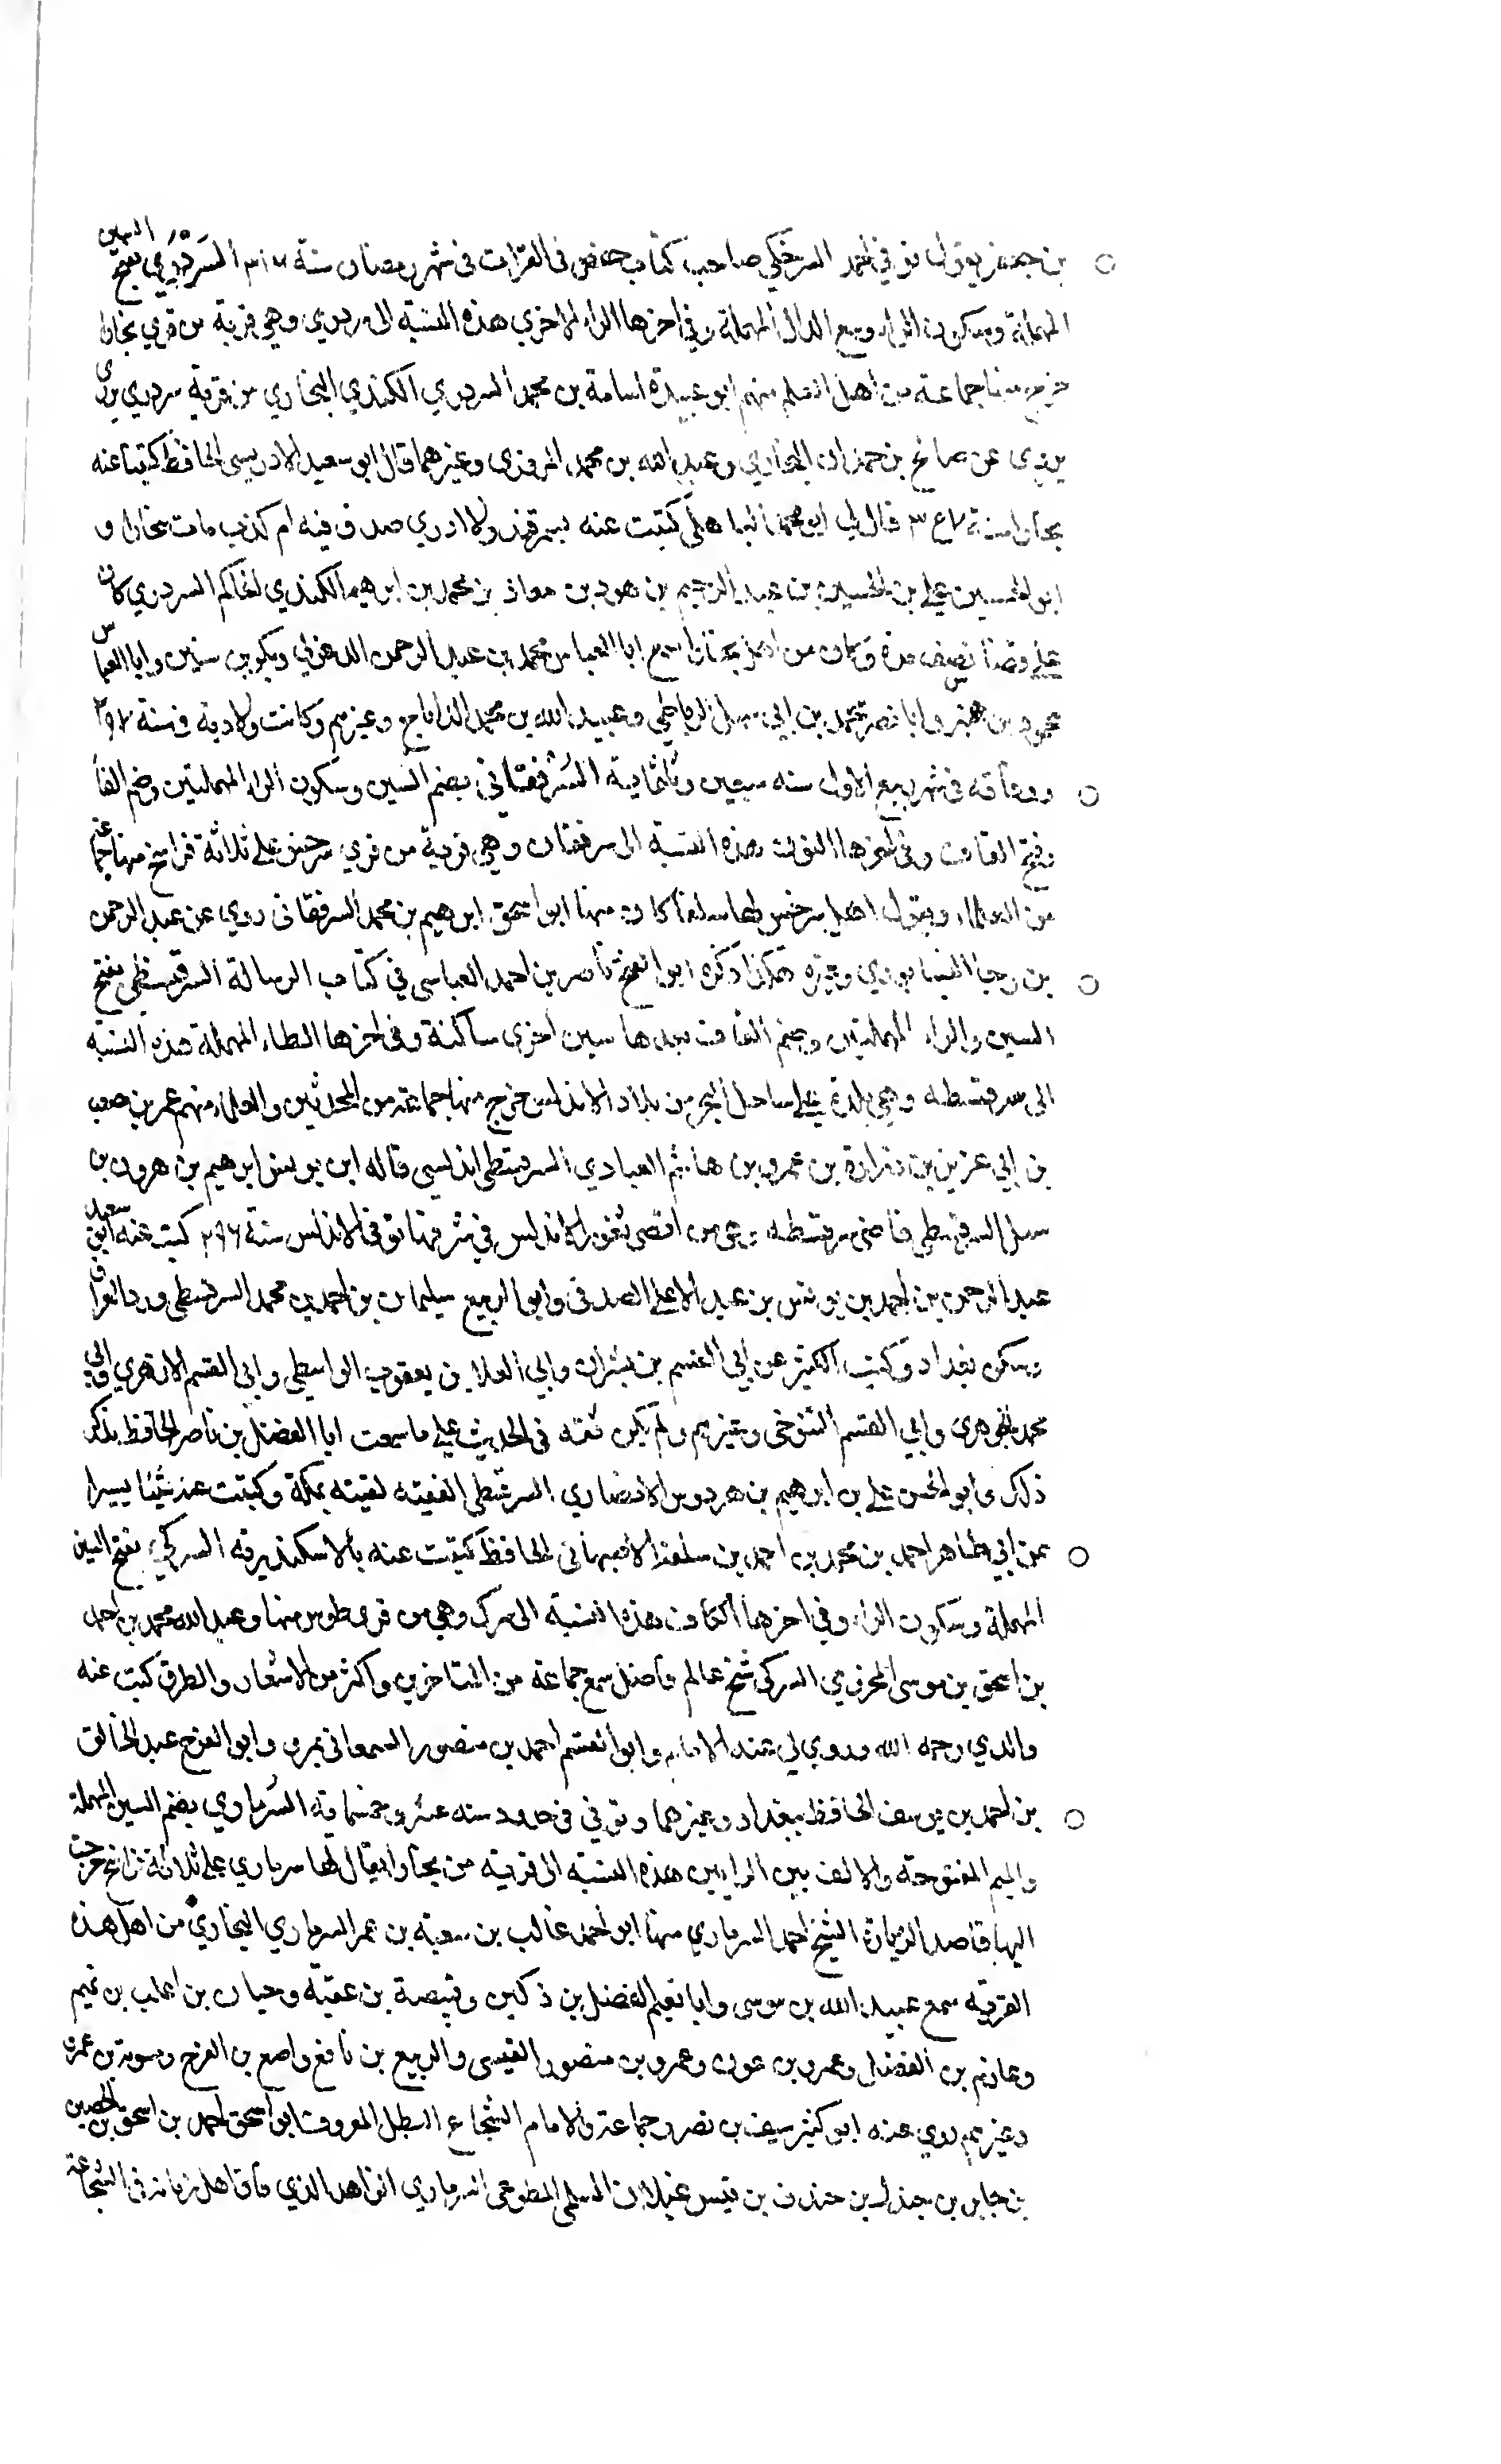 بن جعفر يقول توفي احمد السرخكي صاحب كتاب حفص في القراات في شهر رمضان سنة ٣١٧ السَردَري بفتح السين
المهملة وسكون الراء وفتح الدال المهملة وفي اخرها الراء الاخرى هذه النسبة الى سردري وهي قرية من قرى بخارا
خرج منها جماعة من اهل العلم منهم ابو عبيدة اسامة بن محمد السردري الكندي البخاري من قرية سردري
يروي عن صالح بن حمدان البخاري وعبد الله بن محمد المروزي وغيرهما قال ابو سعيد الادريسي الحافظ كتبنا عنه
بخارا سنة قال لي ابو محمد الباهلي كتبت عنه بسمرقند ولا ادري صدق فيه ام كذب مات بخارا و
ابو الحسين علي بن الحسين بن عبد الرحيم بن هود بن معاذ بن محمد بن ابرهيم الكندي الحاكم السردري كان
على قضا نصف مدة وكان من اهل بخارا سمع ابا العباس محمد بن عبد الرحمن الدغولي وبكر بن سنين وابا العباس
محمود بن عنبر وابا نصر محمد بن ابي سهل الرباطي وعبيد الله بن محمد وغيرهم وكانت ولادته في سنة
ووفاته في شهر ربيع الاول سنه سبعين وثلثماية السُرفقاني بضم السين وسكون الراء المهملتين وضم الفا
وفتح القاف وفي اخرها النون هذه النسبة الى سرفقان وهي قرية من قرى سرخس على ثلاثة فراسخ منها جماعة
من العلماء ويقول اهل سرخس لها سلفكان منها ابو اسحق ابرهيم بن محمد السرفقاني روى عن عبد الرحمن
بن رجا النيسابوري وغيره هكذا ذكره ابو الفتح ناصر بن احمد العياسي في كتاب الرسالة السرقسطي بفتح
السين والراء المهملتين وضم القاف بعدها سين اخرى ساكنة وفي اخرها الطاء المهملة هذه النسبة
الى سرقسطه وهي بلدة على ساحل البحر من بلاد الاندلس خرج منها جماعة من المحدثين والعلماء منهم عمر بن مصعب
بن ابي عزيز بن زرارة بن عمرو بن هاشم العبادي السرقسطي اندلسي قاله ابن يونس ابرهيم بن هرون بن
سهل السرقسطي قاضي سرقسطه وهي من اقصى ثغور الاندلس في شرقها توفي الاندلس سنة ٢٩٦ كتب عنه ابو سعيد
عبد الرحمن بن احمد بن يونس بن عبد الاعلى الصدفي وابو الربيع سليمان بن احمد بن محمد السرقسطي ورد العراق
وسكن بغداد وكتب الكثير عن ابي القسم بن بشران وابي العلا بن يعقوب الواسطي وابي القسم الازهري وابي
محمد الجوهري وابي القسم التنوخي وغيرهم ولم يكن ثقه في الحديث على ما سمعت ابا الفضل بن ناصر الحافظ يذكر
ذلك وابو الحسن علي بن ابرهيم بن هردوس الانصاري السرقسطي الفقيه لقيته بمكة وكتبت عنه شيئا يسيرا
عن ابي طاهر احمد بن محمد بن احمد بن سلفه الاصبهاني الحافظ كتبت عنه بالاسكندرية السركي بفتح السين
المهملة وسكون الراء وفي اخرها الكاف هذه النسبة الى سرك وهي من قرى طوس منها وعبد الله محمد بن احمد
بن اسحق بن موسى المخزومي السركي شيخ عالم فاضل سمع جماعة من المتاخرين واكثر من الاشعار والطرف كتب عنه
والدي رحمه الله وروى لي عنه الامام وابو القسم احمد بن منصور السمعاني بمرو وابو الفرج عبد الخالق
بن احمد بن يوسف الحافظ ببغداد وغيرهما وتوفي في حدود سنه عشر وخمسمايه السُرماري بضم السين المهملة
والميم المفتوحة والالف بين الرايين هذه النسبة الى قرية من بخارا يقال لها سرماري على ثلاثة فراسخ خرجت
اليها قاصدا لزيارة الشيخ احمد السرماري منها ابو احمد غالب بن سعبة بن عمر السرماري البخاري من اهل هذه
القرية سمع عبيد الله بن موسى وابا نعيم الفضل بن دكين وقبيصة بن عقبة وحيان بن اغلب بن تميم
وعارم بن الفضل وعمرو بن عون وعمرو بن منصور القيسي والربيع بن نافع واصبغ بن الفرج وسويد بن عمرو
وغيرهم روى عنه ابو كثير سيف بن نصر وجماعة والامام الشجاع البطل المعروف ابو اسحق احمد بن اسحق بن الحصين
بن جابر بن جندل بن خندف بن قيس عيلان السلمي المطوعي السرماري الزاهد الذي فاق اهل زمانه في الشجاعة